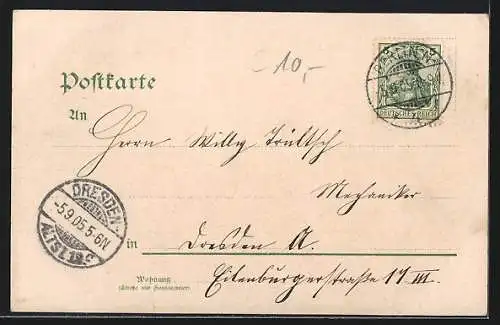 -10,-
Postkarte
DEUTSCHES REICH
An
Herrn Willy Trültzsch
Mechaniker
DRESDEN-
-5.9.05 5-6N
ALTST. 19.c
in Dresden A.
Eilenburgerstraße 17 III.
Wohnung
(Straße und Hausnummer)